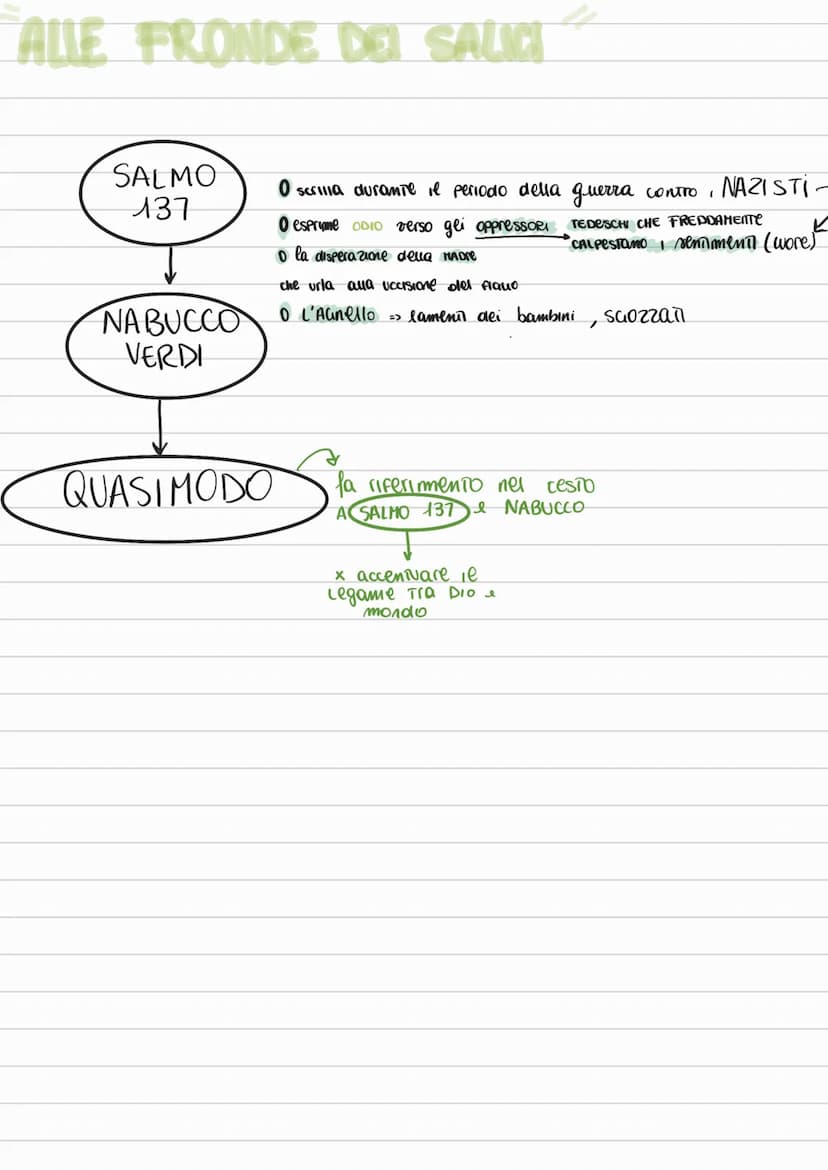 "ALLE FRONDE DEI SALICI"
SALMO
137
O scritta durante il periodo della guerra contro i NAZISTI
O esprime ODIO verso gli oppressori TEDESCHI CHE FREDDAMENTE
CALPESTANO i sentimenti (cuore)
O la disperazione della MADRE
che urla alla uccisione del figlio
O L'AGNELLO => lamenti dei bambini, SGOZZATI
NABUCCO
VERDI
QUASIMODO
fa riferimento nel testo
A SALMO 137 e NABUCCO
x accentuare il
legame TRA DIO e
mondo